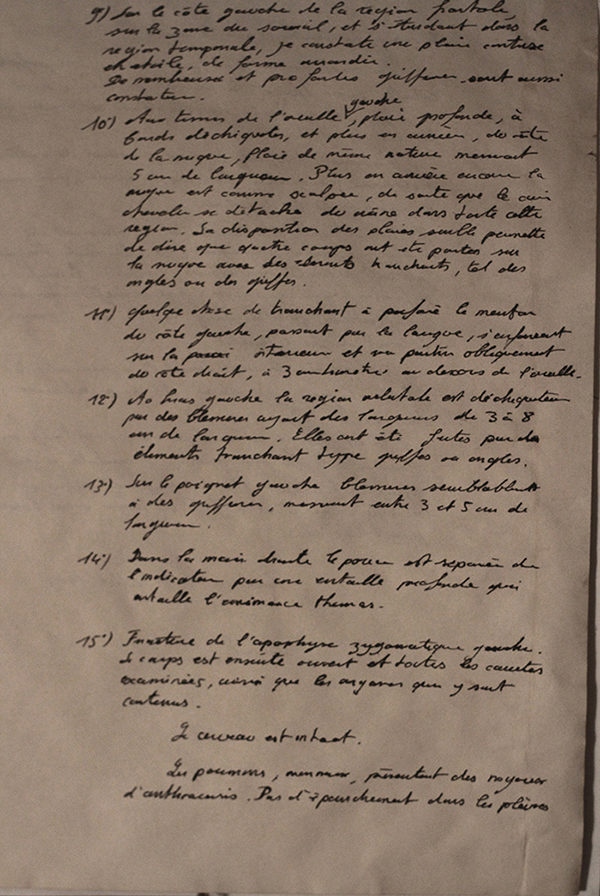 9°) Sur le côté gauche de la région frontale
sur la zone du sourcil, et s'étendant dans la
région temporale, je constate une plaie contuse
en étoile, de forme arrondie.
De nombreuses et profondes griffures sont aussi
constatées.
gauche
10°) Au dessous de l'oreille, plaie profonde, à
bords déchiquetés, et plus en arrière, du côté
de la nuque, plaie de même nature mesurant
5 cm de largueur. Plus en arrière encore la
nuque est comme scalpée, de sorte que le cuir
chevelu se détache de même dans toute cette
région. La disposition des plaies semble permettre
de dire que quatre coups ont été portés sur
la nuque avec des éléments tranchants, tel des
ongles ou des griffes.
11°) Quelque chose de tranchant à perforé le menton
du côté gauche, passant par la langue, s'enfonçant
sur la paroi intérieur et va partir obliquement
du côté droit, à 3 centimètres au dessous de l'oreille.
12°) Au bras gauche la région est déchiquetée
par des blessures ayant des largeurs de 3 à 8
cm de largueur. Elles ont été faites par des
éléments tranchant type griffes ou ongles.
13°) Sur le poignet gauche blessures semblables
à des griffures, mesurant entre 3 et 5 cm de
largueur.
14°) Dans la main droite le pouce est séparé de
l'indicateur par une entaille profonde qui
entaille l'éminence thenar.
15°) Fracture de l'apophyse zygomatique gauche.
Le corps est ensuite ouvert et toutes les cavités
examinées, ainsi que les organes qui y sont
contenus.
Le cerveau est intact.
Les poumons, présentent des noyaux
d'anthracosis. Pas d'épanchement dans les plèvres